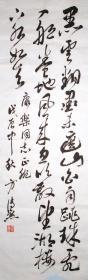 黑雲翻墨未遮山白雨跳珠亂入
船卷地風來忽吹散望湖樓
下水如天
樂同志正
戊辰中秋